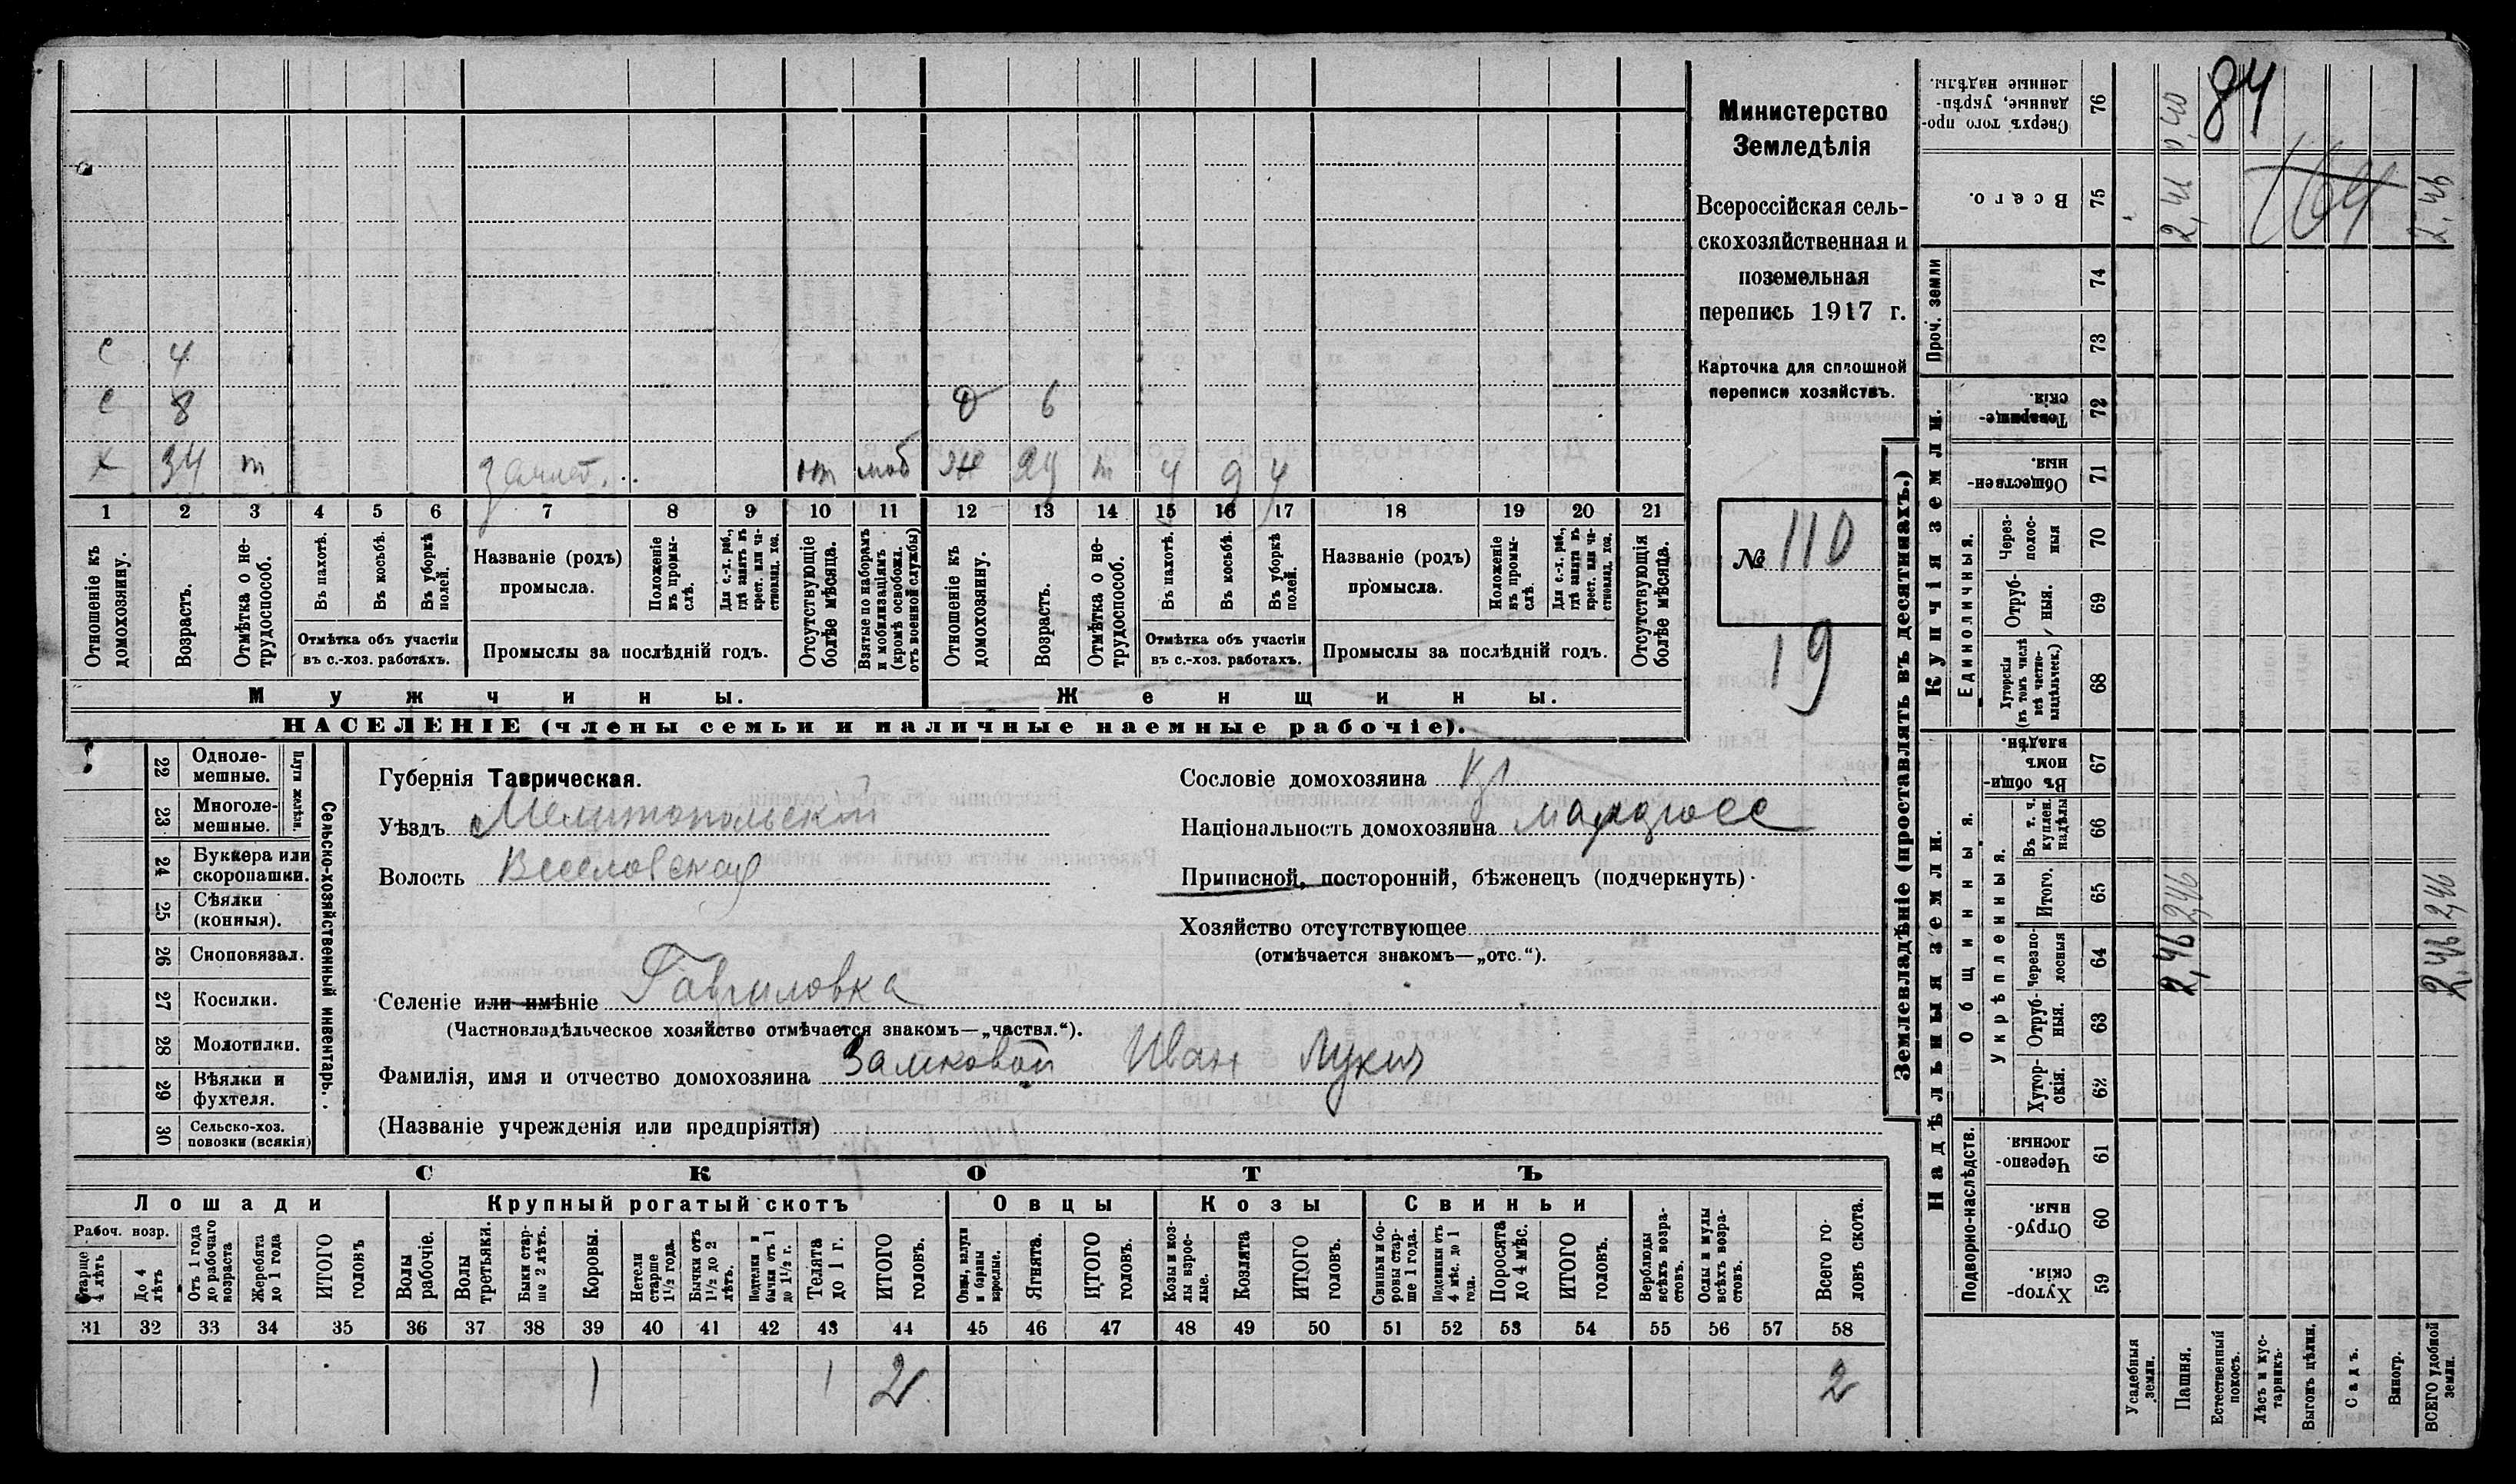 С 4
С 8 д 6
х 34 т от моб ж 29 т
1 2 3 4 5 6 7 8 9 10 11 12 13 14 15 16 17 18 19 20 21
Отношеніе къ домохозяину.
Возрастъ.
Отмѣтка о не-трудоспособ.
Въ пахотѣ.
Въ косьбѣ.
Въ уборкѣ полей.
Отмѣтка объ участіи
въ с.-хоз. работахъ.
Названіе (родъ)
промысла.
Положеніе въ промы-слѣ.
Для с.-х. раб., гдѣ занятъ въ крест. или ча-стновлад. хоз.
Промыслы за послѣдній годъ.
Отсутствующіе болѣе мѣсяца.
Взятые по наборамъ и мобилизаціямъ (кромѣ освобожд. отъ военной службы)
Отношеніе къ домохозяину.
Возрастъ.
Отмѣтка о не-трудоспособ.
Въ пахотѣ.
Въ косьбѣ.
Въ уборкѣ полей.
Отмѣтка объ участіи
въ с.-хоз. работахъ.
Названіе (родъ)
промысла.
Положеніе въ промы-слѣ.
Для с.-х. раб., гдѣ занята въ крест. или ча-стновлад. хоз.
Промыслы за послѣдній годъ.
Отсутствующія болѣе мѣсяца.
Мужчины.
Женщины.
НАСЕЛЕНІЕ (члены семьи и наличные наемные рабочіе).
Министерство
Земледѣлія
Всероссійская сель-
скохозяйственная и
поземельная
перепись 1917 г.
Карточка для сплошной
переписи хозяйствъ.
№ 110
19
22 Одноле-мешные.
23 Многоле-мешные.
Плуги желѣзн.
24 Буккера или скоропашки.
25 Сѣялки (конныя).
26 Сноповязал.
27 Косилки.
28 Молотилки.
29 Вѣялки и фухтеля.
30 Сельско-хоз. повозки (всякія)
Сельско-хозяйственный инвентарь.
Губернія Таврическая.
Уѣздъ Мелитопольский
Волость Веселовская
Селеніе или имѣніе Гавриловка
(Частновладѣльческое хозяйство отмѣчается знакомъ—„частвл.“).
Фамилія, имя и отчество домохозяина Замковой Иван Лукич
(Названіе учрежденія или предпріятія)
Сословіе домохозяина кр
Національность домохозяина малоросс
Приписной, посторонній, бѣженецъ (подчеркнуть)
Хозяйство отсутствующее
(отмѣчается знакомъ—„отс.“).
СКОТЪ
Лошади Крупный рогатый скотъ Овцы Козы Свиньи
Рабоч. возр.
Старше 4 лѣтъ
До 4 лѣтъ
Отъ 1 года до рабочаго возраста
Жеребята до 1 года
ИТОГО головъ
Волы рабочіе.
Волы третьяки.
Быки стар-ше 2 лѣтъ.
Коровы.
Нетели старше 1½ года.
Бычки отъ 1½ до 2 лѣтъ.
Подтелки и бычки отъ 1 до 1½ г.
Телята до 1 г.
ИТОГО головъ.
Овцы, валухи и бараны взрослые.
Ягнята.
ИТОГО головъ.
Козы и коз-лы взрос-лые.
Козлята
ИТОГО головъ.
Свиньи и бо-ровы стар-ше 1 года.
Подсвинки отъ 4 мѣс. до 1 года.
Поросята до 4 мѣс.
ИТОГО головъ.
Верблюды всѣхъ возра-стовъ.
Ослы и мулы всѣхъ возра-стовъ.
Всего го-ловъ скота.
31 32 33 34 35 36 37 38 39 40 41 42 43 44 45 46 47 48 49 50 51 52 53 54 55 56 57 58
1 1 2 2
Землевладѣніе (проставлять въ десятинахъ.)
Сверхъ того про-данные, укрѣп-ленные надѣлы. 76
Всего. 75
Проч. земли
74
73
Купчія земли.
Товарище-скія. 72
Обществен-ныя. 71
Единоличныя.
Через-полос-ныя 70
Отруб-ныя. 69
Хуторскія (въ томъ числѣ всѣ частно-владѣльческ.) 68
Надѣльныя земли.
Общинныя.
Въ общи-номъ владѣн. 67
Укрѣпленныя.
Въ т. ч. куплен. надѣлы 66
Итого. 65
Черезпо-лосныя 64
Отруб-ныя. 63
Хутор-скія. 62
Подворно-наслѣдств.
Черезпо-лосныя. 61
Отруб-ныя. 60
Хутор-скія. 59
Усадебныя земли.
Пашня.
Естественный покосъ.
Лѣсъ и кус-тарникъ.
Выгонъ цѣлин.
Садъ.
Виногр.
ВСЕГО удобной земли.
84
164
2,46 2,46
2,46 2,46 2,46